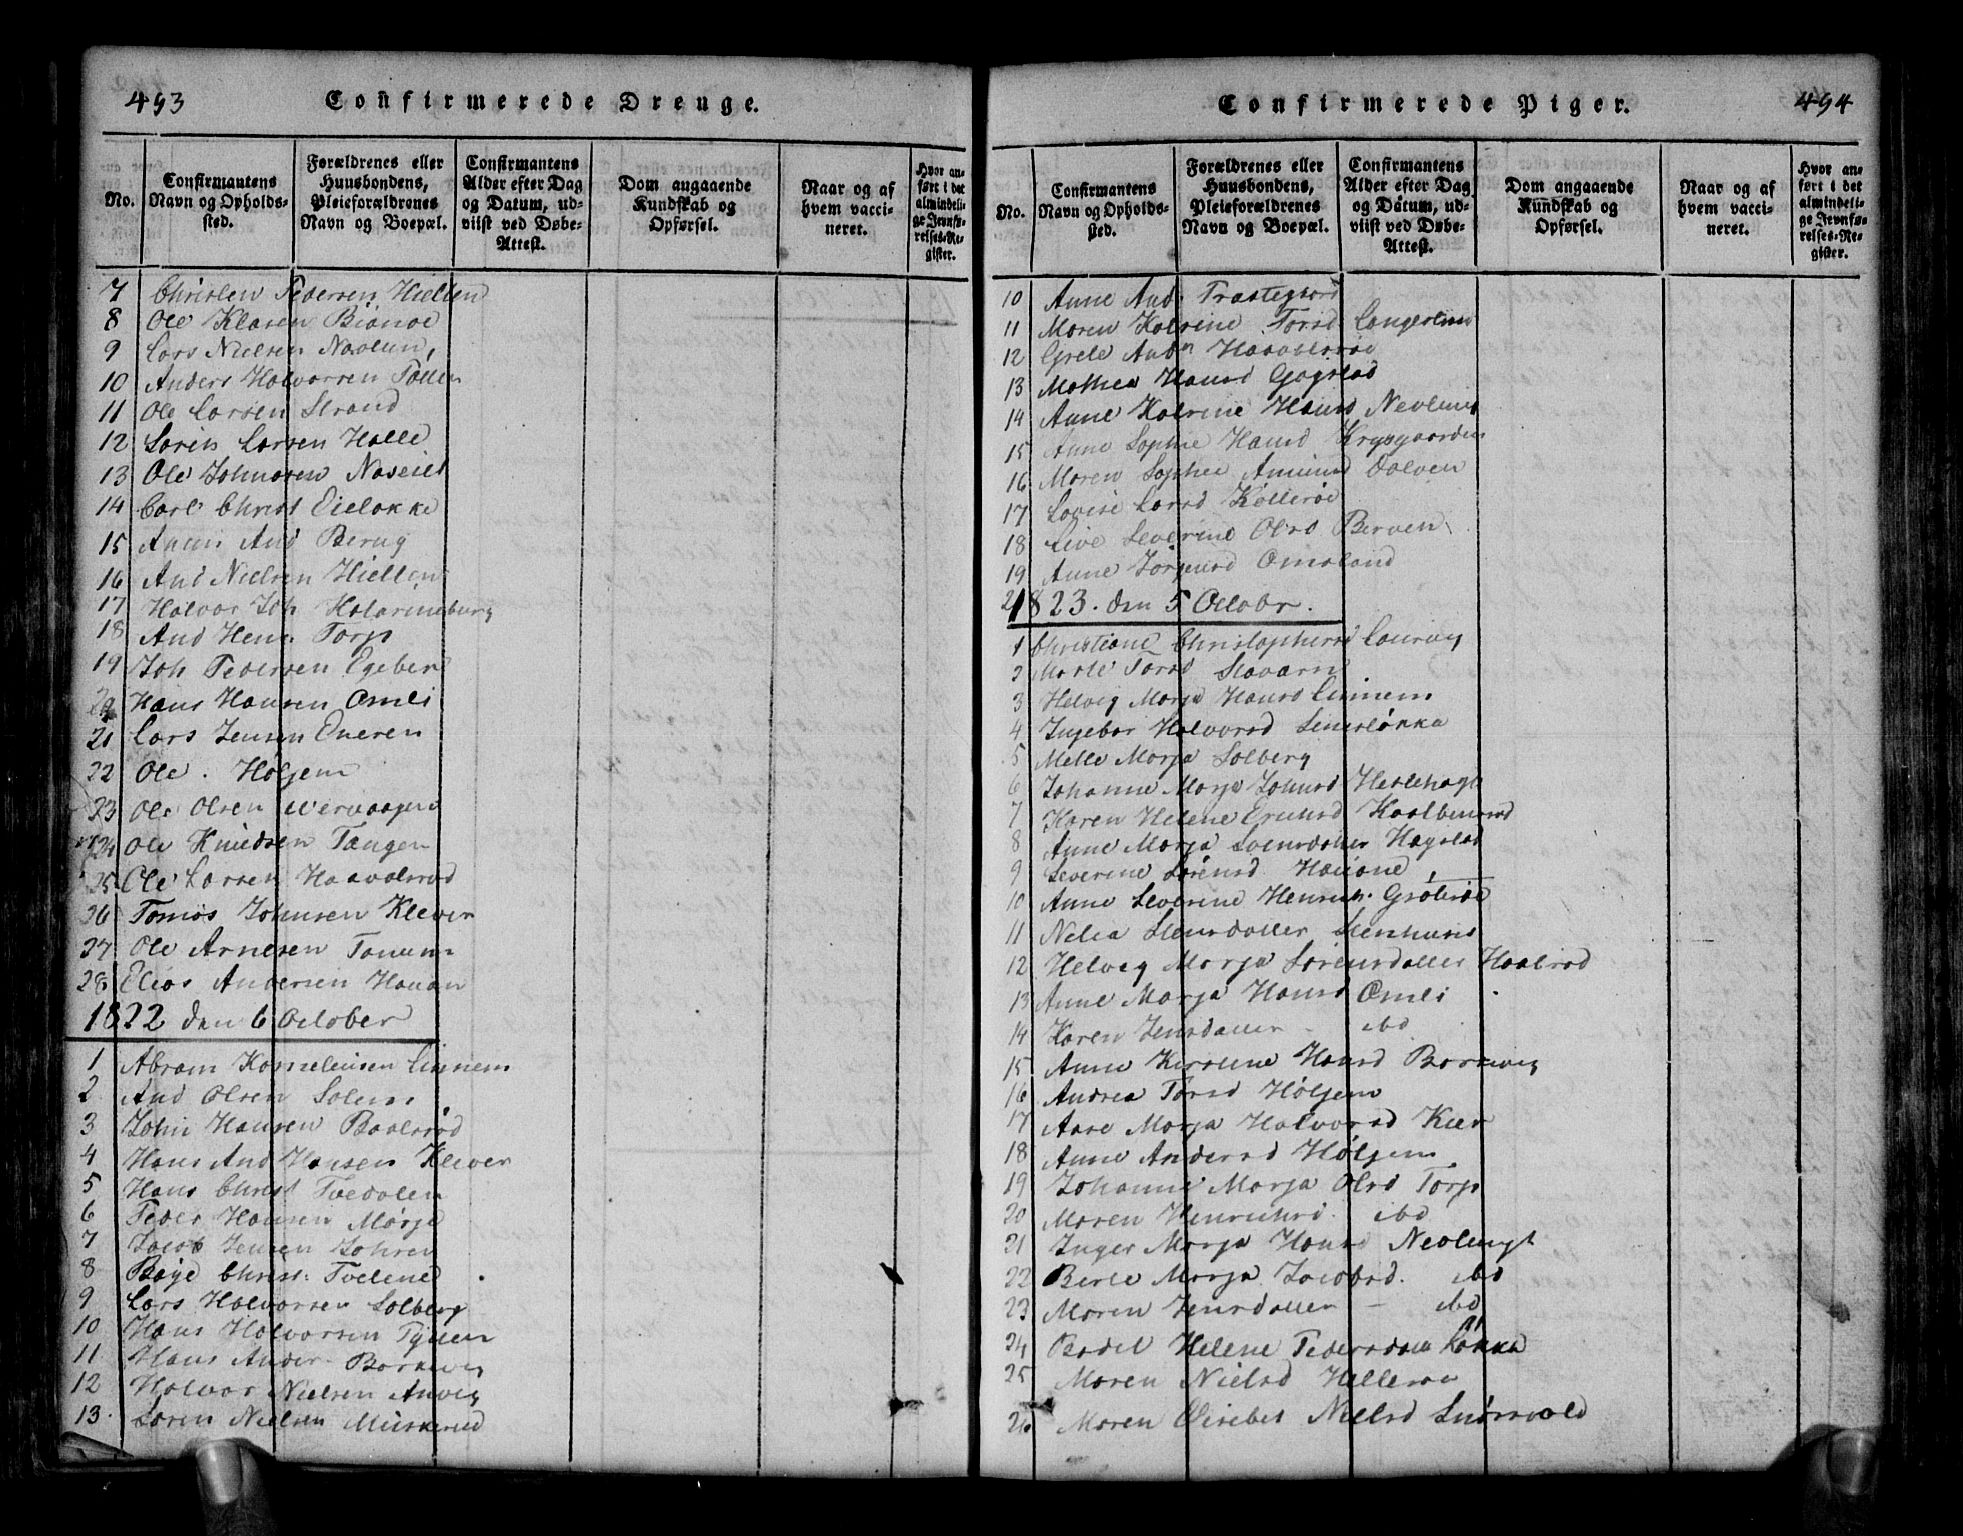 493
Confirmerede Drenge.
No.
Confirmantens Navn og Opholdssted.
Forældrenes eller Huusbondens, Pleieforældrenes Navn og Boepæl.
Confirmantens Alder efter Dag og Datum, udviist ved Døbe-Attest.
Dom angaaende Kundskab og Opførsel.
Naar og af hvem vaccineret.
Hvor anført i det almindelige Jevnførelses-Register.
7 Christen Pedersen Hiellen
8 Ole Klasen Bionøe
9 Lars Nielsen Navlun,
10 Anders Halvorsen
11 Ole Larsen Strand
12 Søren Larsen Halle
13 Ole Johnsen Naseiet
14 Carl Christ Eieløkke
15 And Berug
16 And Nielsen Hiellen
17 Halvor Joh Katarineburg
18 And Henr. Torp
19 Joh Pedersen Egeber
20 Hans Hansen Omli
21 Lars Jensen Eneren
22 Ole . Holjem
23 Ole Olsen Wervaagen
24 Ole Knudsen Tangen
25 Ole Larsen Haavalsrød
26 Tomas Johnsen Klever
27 Ole Arnesen Tanum
28 Elias Andersen Hauan
1822 den 6 October
1 Abram Kornelensen Linnem
2 And Olsen Solem
3 John Hansen Baalsrød
4 Hans And Hansen Klever
5 Hans Christ Tvedalen
6 Peder Hansen Mørje
7 Jacob Jensen
8 Børge Christ. Tvetene
9 Lars Halvorsen Solberg
10 Hans Halvorsen
11 Hans Ander Barkevig
12 Halvor Nielsen Anvig
13 Søren Nielsen Muskerud
494
Confirmerede Piger.
No.
Confirmantens Navn og Opholdssted.
Forældrenes eller Huusbondens, Pleieforældrenes Navn og Boepæl.
Confirmantens Alder efter Dag og Datum, udviist ved Døbe-Attest.
Dom angaaende Kundskab og Opførsel.
Naar og af hvem vaccineret.
Hvor anført i det almindelige Jevnførelses-Register.
10 Anne And. Præstegaard
11 Maren Katrine Larsd Langestrand
12 Grete Andn
13 Mathea Hansd Gogstad
14 Anne Katrine Hansd Nevlung
15 Anne Sophie Hansd Krysgaarden
16 Maren Sophie Amund Dolven
17 Lovise Larsd Kellerøe
18 Live Severine Olsd Berven
19 Anne Jørgensd Omsland
1823. den 5 Octobr.
1 Christiane Christophersd Laurvig
2 Marte Larsd Stavarn
3 Helvig Marja Hansd Linnem
4 Ingebor Halvorsd Seierløkka
5 Mette Marja Solberg
6 Johanne Marja Johnsd
7 Karen Helene
8 Anne Marja Svensdatter Hagstad
9 Severine Sørensd Hauane
10 Anne Severine Henrich.
11 Nelea Stensdatter Stenhuus
12 Helvig Marja Sørensdatter Haalrød
13 Anne Marja Hansd Omli
14 Karen Jensdatter - ibd
15 Anne Kirstine Hansd Barkevig
16 Andrea Larsd Holjem
17 Aase Marja Halvorsd Kier
18 Anne Andersd Holjem
19 Johanne Marja Olsd Torp
20 Maren Henrichsd. ibd
21 Inger Marja Hansd
22 Berte Marja Jacobsd. ibd
23 Maren Jensdatter - ibd
24 Bodel Helene Pedersdatt Løkka
25 Maren Nielsd
26 Maren Elisebet Nielsd